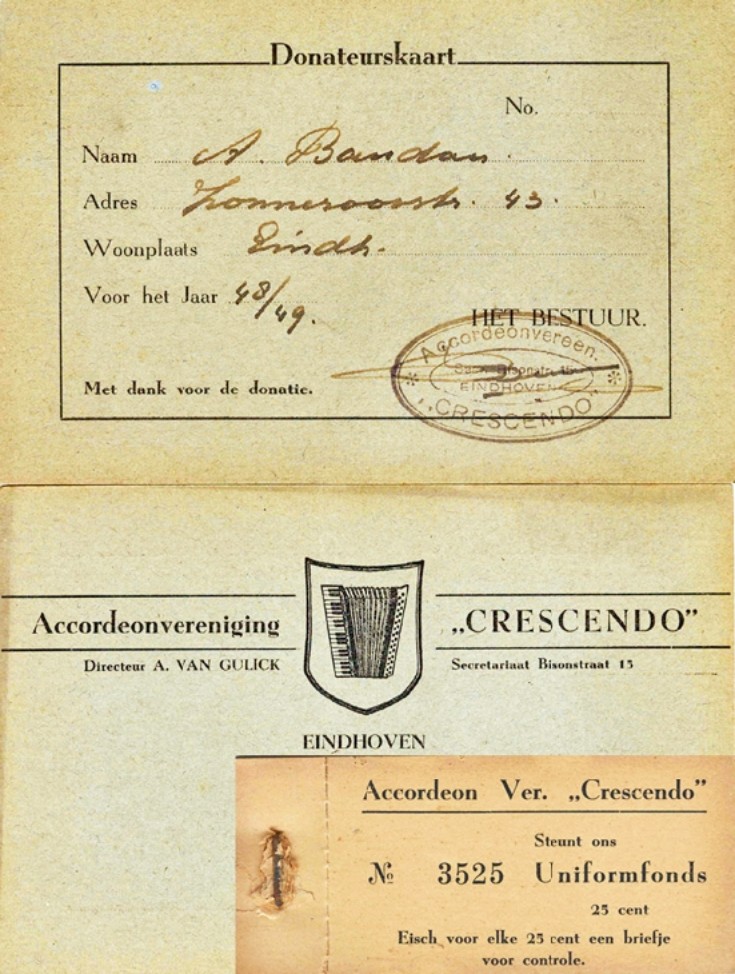 Donateurskaart
No.
Naam A. Baudou
Adres 43.
Woonplaats Eindh.
Voor het Jaar 48/49.
HET BESTUUR.
Accordeonvereen.
Bisonstr. 15
EINDHOVEN
„CRESCENDO”
Met dank voor de donatie.
Accordeonvereniging „CRESCENDO”
Directeur A. VAN GULICK Secretariaat Bisonstraat 15
EINDHOVEN
Accordeon Ver. „Crescendo”
Steunt ons
№ 3525 Uniformfonds
25 cent
Eisch voor elke 25 cent een briefje
voor controle.